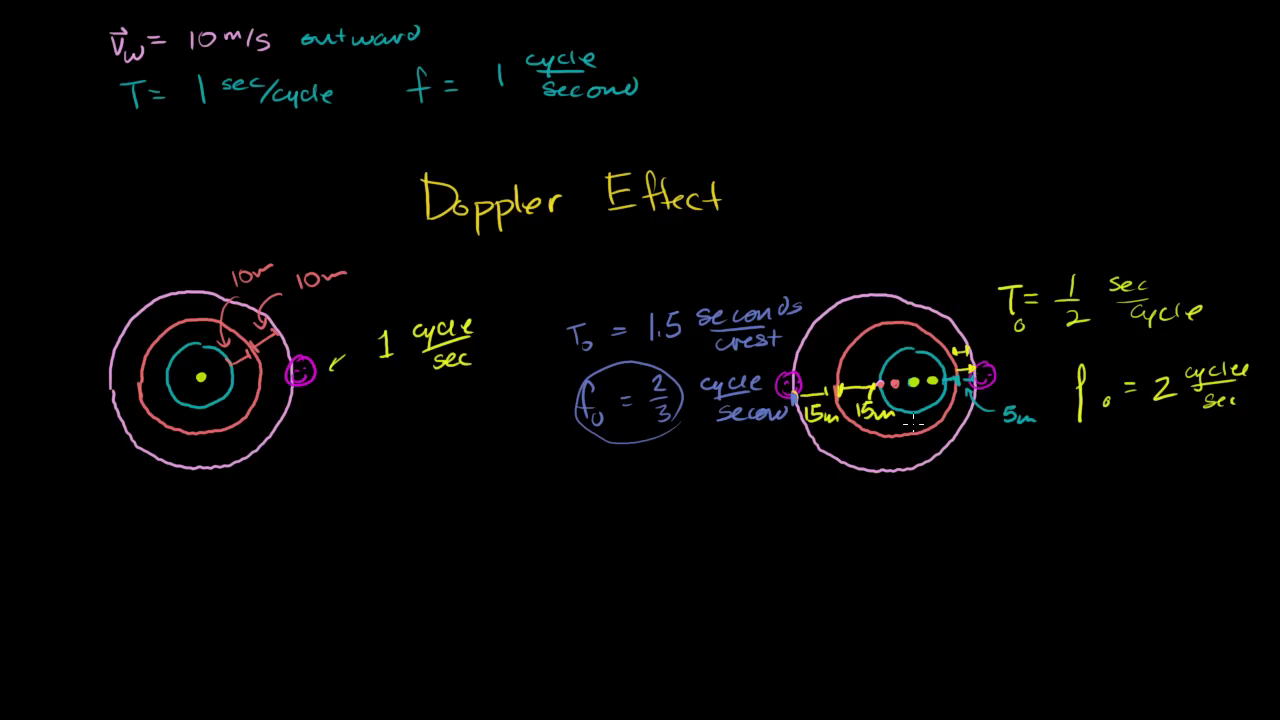 v⃗w = 10 m/s outward
T = 1 sec/cycle f = 1 cycle/second
Doppler Effect
10m 10m
1 cycle/sec
To = 1.5 seconds/crest
fo = 2/3 cycle/second
15m 15m
5m
To = 1/2 sec/cycle
fo = 2 cycles/sec